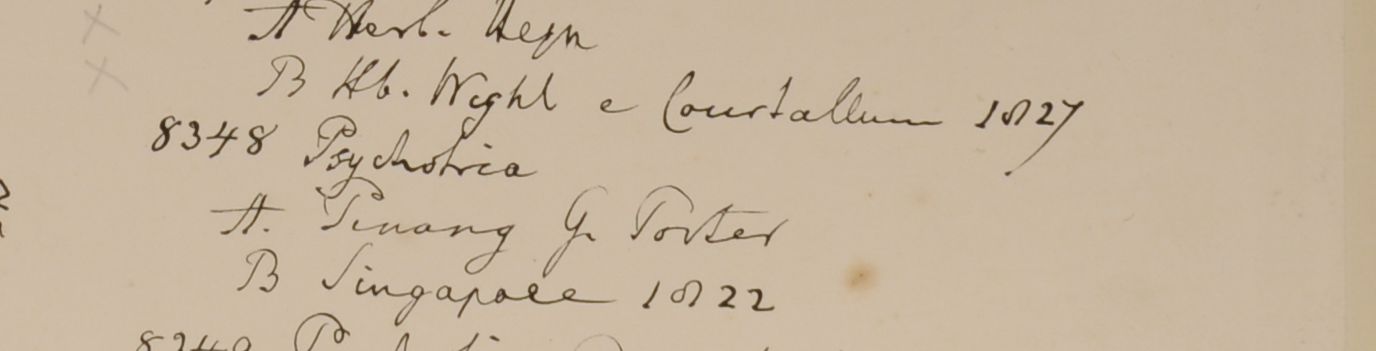 A Herb. Heyn
B Hb. Wight e Courtallum 1827
8348 Psychotria
A. Pinang G. Porter
B Singapore 1822
8349